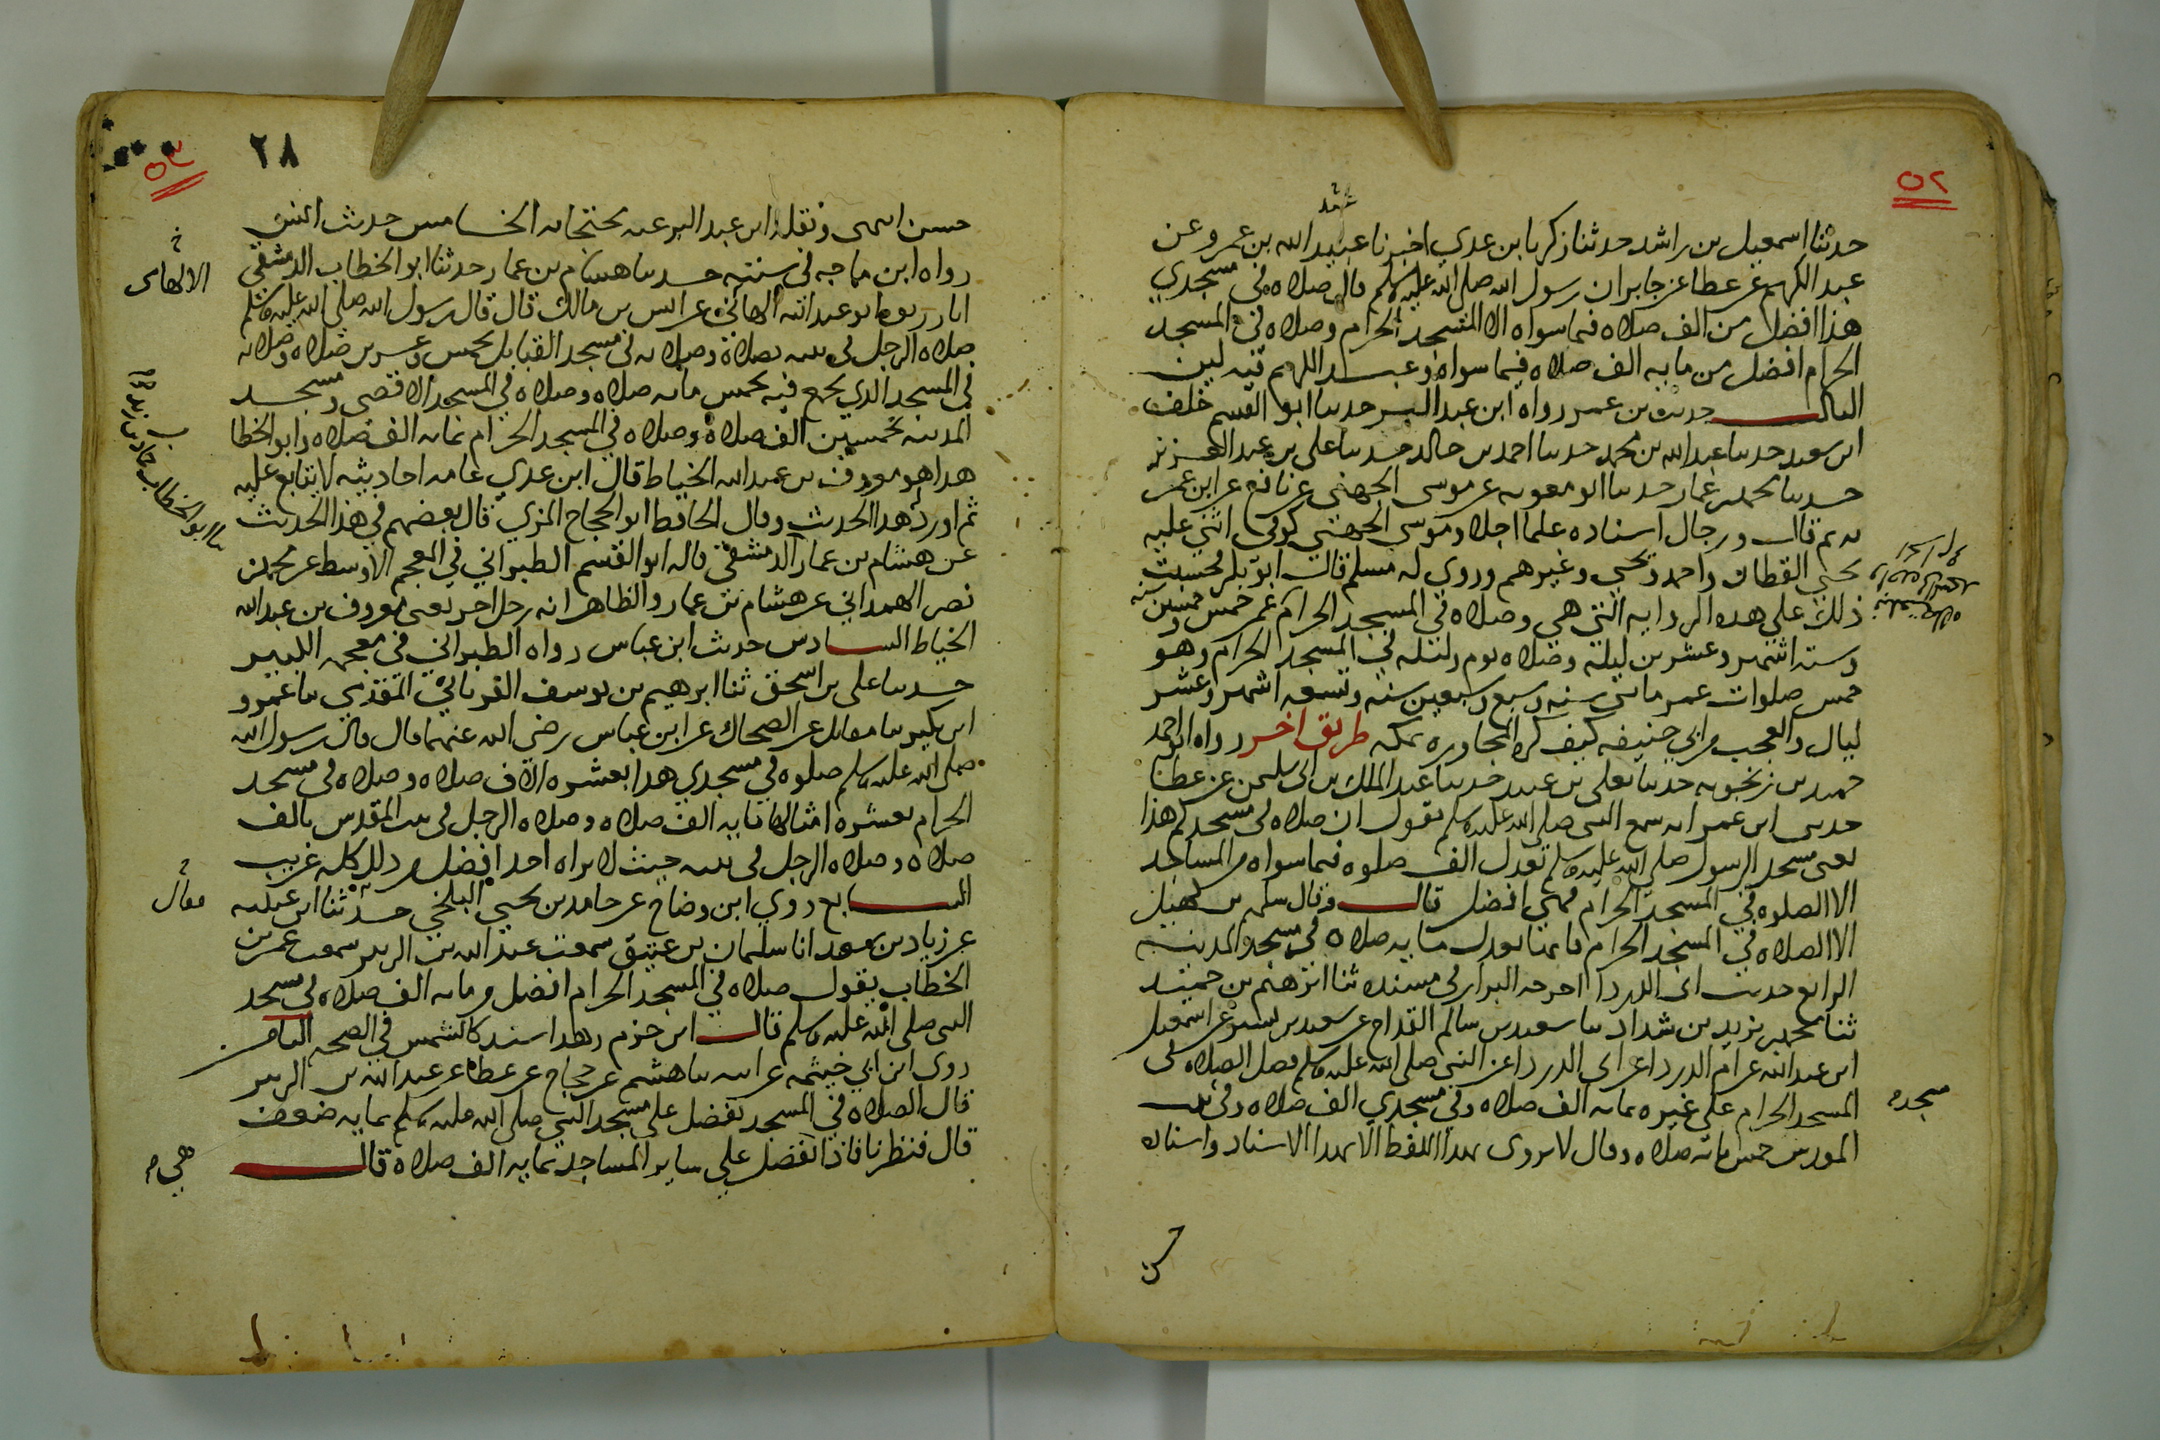 ٥٢
حدثنا اسمعيل بن راشد حدثنا زكريا بن عدي اخبرنا عبيد الله بن عمرو عن
عبد الكريم عن عطا عن جابر ان رسول الله صلى الله عليه وسلم قال صلاه في مسجدي
هذا افضل من الف صلاه فيما سواه الا المسجد الحرام وصلاه في المسجد
الحرام افضل من مايه الف صلاه فيما سواه وعبد الكريم فيه لين
الثالث حديث بن عمر رواه ابن عبد البر حدثنا ابو القسم خلف
ابن سعيد حدثنا عبد الله بن محمد حدثنا احمد بن خالد حدثنا علي بن عبد العزيز
حدثنا محمد بن عمار حدثنا ابو معويه عن موسى الجهني عن نافع عن ابن عمر
به ثم قال ورجال اسناده علما اجلا وموسى الجهني كوفي اثنى عليه
يحيى القطان واحمد ويحيى وغيرهم وروى له مسلم قال ابو بكر فحسبت
ذلك على هذه الروايه التي هي وصلاه في المسجد الحرام عمر خمس وخمسين سنه
وسته اشهر وعشرين ليلة وصلاه يوم وليله في المسجد الحرام وهو
خمس صلوات عمر مائتي سنه وسبع وسبعين سنه وتسعه اشهر وعشر
ليال والعجب من ابي حنيفه كيف كره المجاوره بمكه طريق اخر رواه ابو احمد
حميد بن زنجويه حدثنا يعلى بن عبيد حدثنا عبد الملك بن ابي سليمن عن عطا
حدثني ابن عمر انه سمع النبي صلى الله عليه وسلم يقول ان صلاه في مسجدكم هذا
يعني مسجد الرسول صلى الله عليه وسلم تعدل الف صلوه فيما سواه من المساجد
الا الصلوه في المسجد الحرام فهي افضل قال وقال سلمه بن كهيل
الا الصلاه في المسجد الحرام فانها تعدل مايه صلاه في مسجد المدينة
الرابع حديث ابي الدردا اخرجه البزار في مسنده ثنا ابرهيم بن حميد
ثنا محمد بن يزيد بن شداد ثنا سعيد بن سالم القداح عن سعيد بن بشير عن اسمعيل
ابن عبد الله عن ام الدرداء عن ابي الدرداء عن النبي صلى الله عليه وسلم فضل الصلاه في
المسجد الحرام على غيره بمايه الف صلاه وفي مسجدي الف صلاه وفي بيت
المقدس خمس مائة صلاه وقال لا يروى بهذا اللفظ الا بهذا الاسناد واسناده
مسجده
حسن
٥٣
٢٨
حسن انتهى ونقله ابن عبد البر عنه محتجا به الخامس حديث انس
رواه ابن ماجه في سننه حدثنا هشام بن عمار حدثنا ابو الخطاب الدمشقي
انا رزيق ابو عبد الله الالهاني عن انس بن مالك قال قال رسول الله صلى الله عليه وسلم
صلاه الرجل في بيته بصلاة وصلاته في مسجد القبايل بخمس وعشرين صلاه وصلاته
في المسجد الذي يجمع فيه بخمس مائه صلاه وصلاه في المسجد الاقصى ومسجد
المدينه بخمسين الف صلاة وصلاه في المسجد الحرام بمايه الف صلاه وابو الخطا
هذا هو معروف بن عبد الله الخياط قال ابن عدي عامه احاديثه لا يتابع عليه
ثم اورد هذا الحديث وقال الحافظ ابو الحجاج المزي قال بعضهم في هذا الحديث
عن هشام بن عمار الدمشقي قاله ابو القسم الطبراني في المعجم الاوسط عن محمد بن
نصر الهمداني عن هشام بن عمار والظاهر انه رجل اخر يعني معروف بن عبد الله
الخياط السادس حديث ابن عباس رواه الطبراني في معجمه الكبير
حدثنا علي بن اسحق ثنا ابرهيم بن يوسف الفريابي المقدسي ثنا عمرو
ابن بكير ثنا مقاتل عن الضحاك عن ابن عباس رضي الله عنهما قال قال رسول الله
صلى الله عليه وسلم صلوه في مسجدي هذا بعشره الاف صلاه وصلاه في مسجد
الحرام بعشره امثالها مايه الف صلاه وصلاه الرجل في بيت المقدس بالف
صلاه وصلاه الرجل في بيته حيث لا يراه احد افضل من ذلك كله غريب
السابع روى ابن وضاح عن حامد بن يحيى البلخي حدثنا ابن عيينه
عن زياد بن سعد انا سليمان بن عتيق سمعت عبد الله بن الزبير سمعت عمر بن
الخطاب يقول صلاه في المسجد الحرام افضل من مايه الف صلاه في مسجد
النبي صلى الله عليه وسلم قال ابن حزم وهذا سند كالشمس في الصحه الثامن
روى ابن ابي خيثمه عن ابيه ثنا هشيم عن حجاج عن عطاء عن عبد الله بن الزبير
قال الصلاه في المسجد تفضل على مسجد النبي صلى الله عليه وسلم بمايه ضعف
قال فنظرنا فاذا تفضل على ساير المساجد بمايه الف صلاة قال
الالهاني
هي